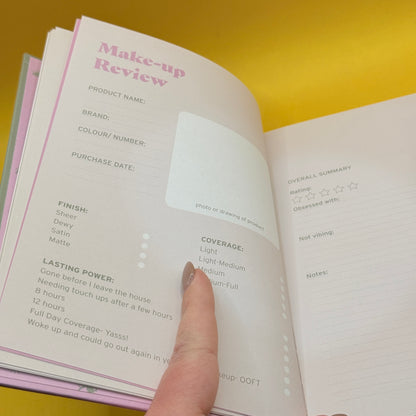 Make-up
Review
PRODUCT NAME:
BRAND:
COLOUR/ NUMBER:
PURCHASE DATE:
photo or drawing of product
FINISH:
Sheer
Dewy
Satin
Matte
COVERAGE:
Light
Light-Medium
Medium
-Full
LASTING POWER:
Gone before I leave the house
Needing touch ups after a few hours
8 hours
12 hours
Full Day Coverage- Yasss!
Woke up and could go out again in
OOFT
OVERALL SUMMARY
Rating:
Obsessed with:
Not vibing:
Notes: